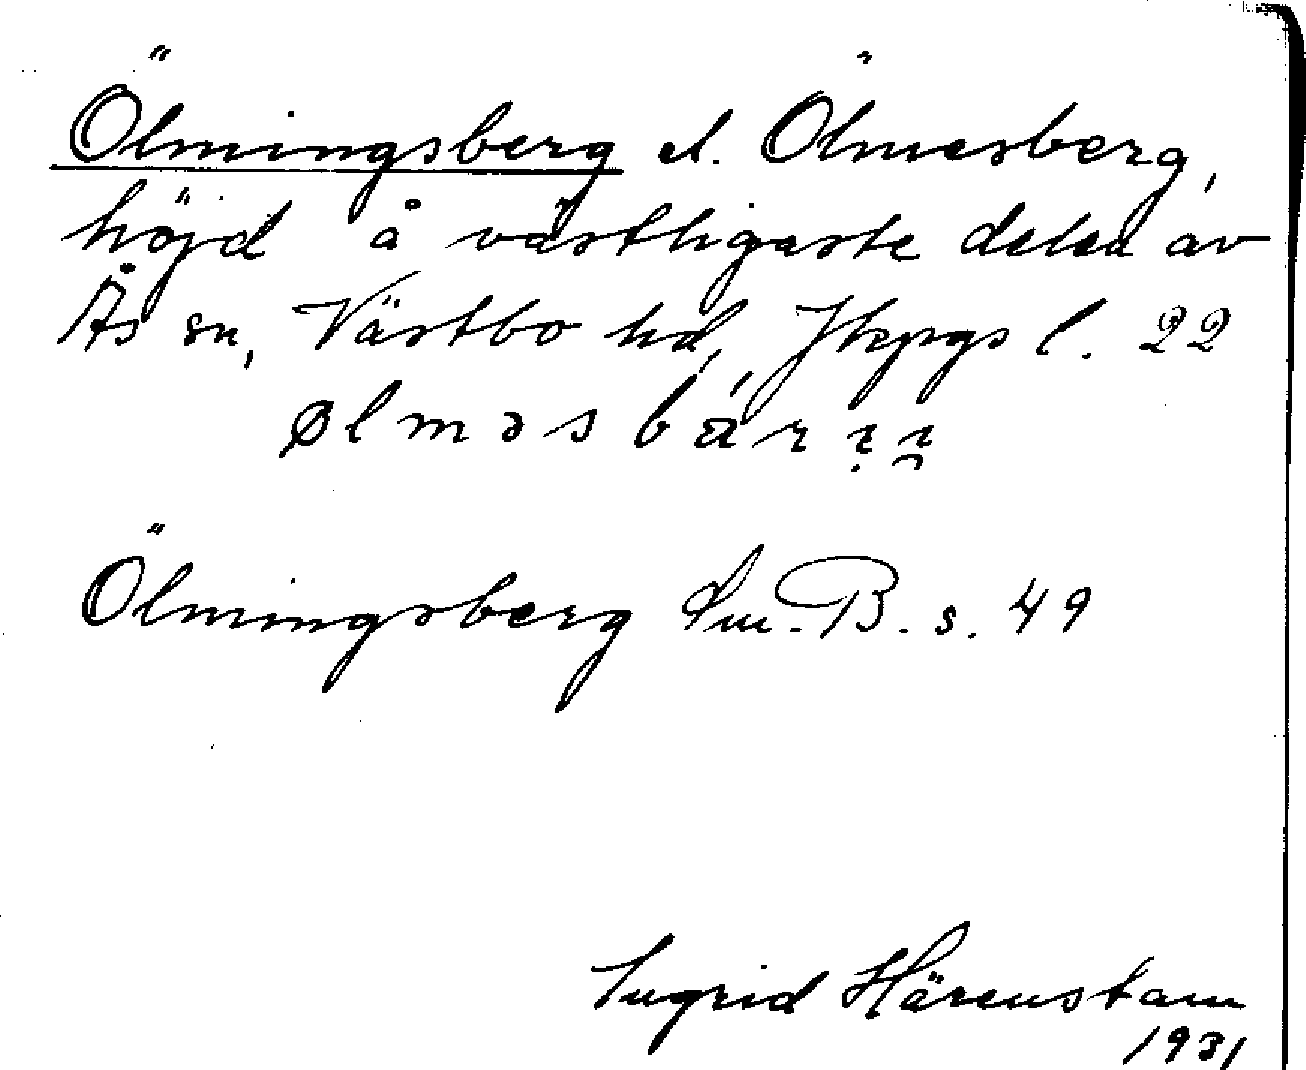 Ölmingsberg el. Ölmesberg,
höjd å västligaste delen av
Ås sn, Västbo hd, Jkpgs l. 22
ølməsbär
Ölmingsberg Sm. B. s. 49
Ingrid Härenstam
1931